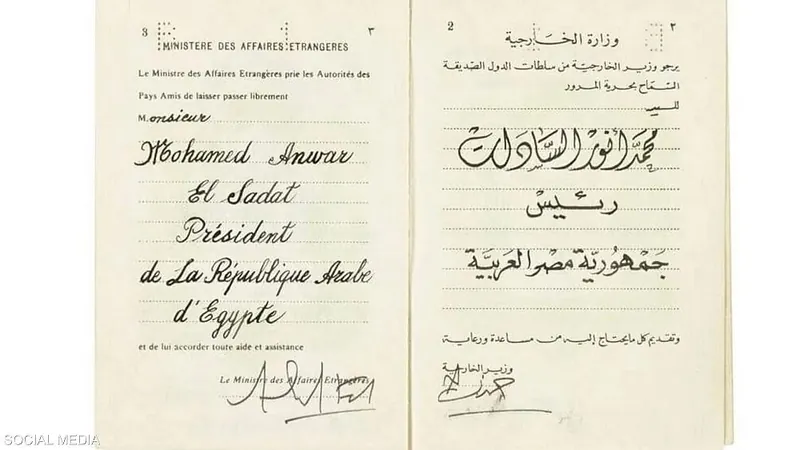 3
٣
MINISTERE DES AFFAIRES ETRANGERES
Le Ministre des Affaires Etrangères prie les Autorités des
Pays Amis de laisser passer librement
Monsieur
Mohamed Anwar
El Sadat
Président
de La République Arabe
d'Egypte
et de lui accorder toute aide et assistance
Le Ministre des Affaires Etrangères
2
٢
وزارة الخارجية
يرجو وزير الخارجية من سلطات الدول الصديقة
السماح بحرية المرور
للسيد
محمد أنور السادات
رئيس
جمهورية مصر العربية
وتقديم كل ما يحتاج إليه من مساعدة ورعاية
وزير الخارجية
SOCIAL MEDIA